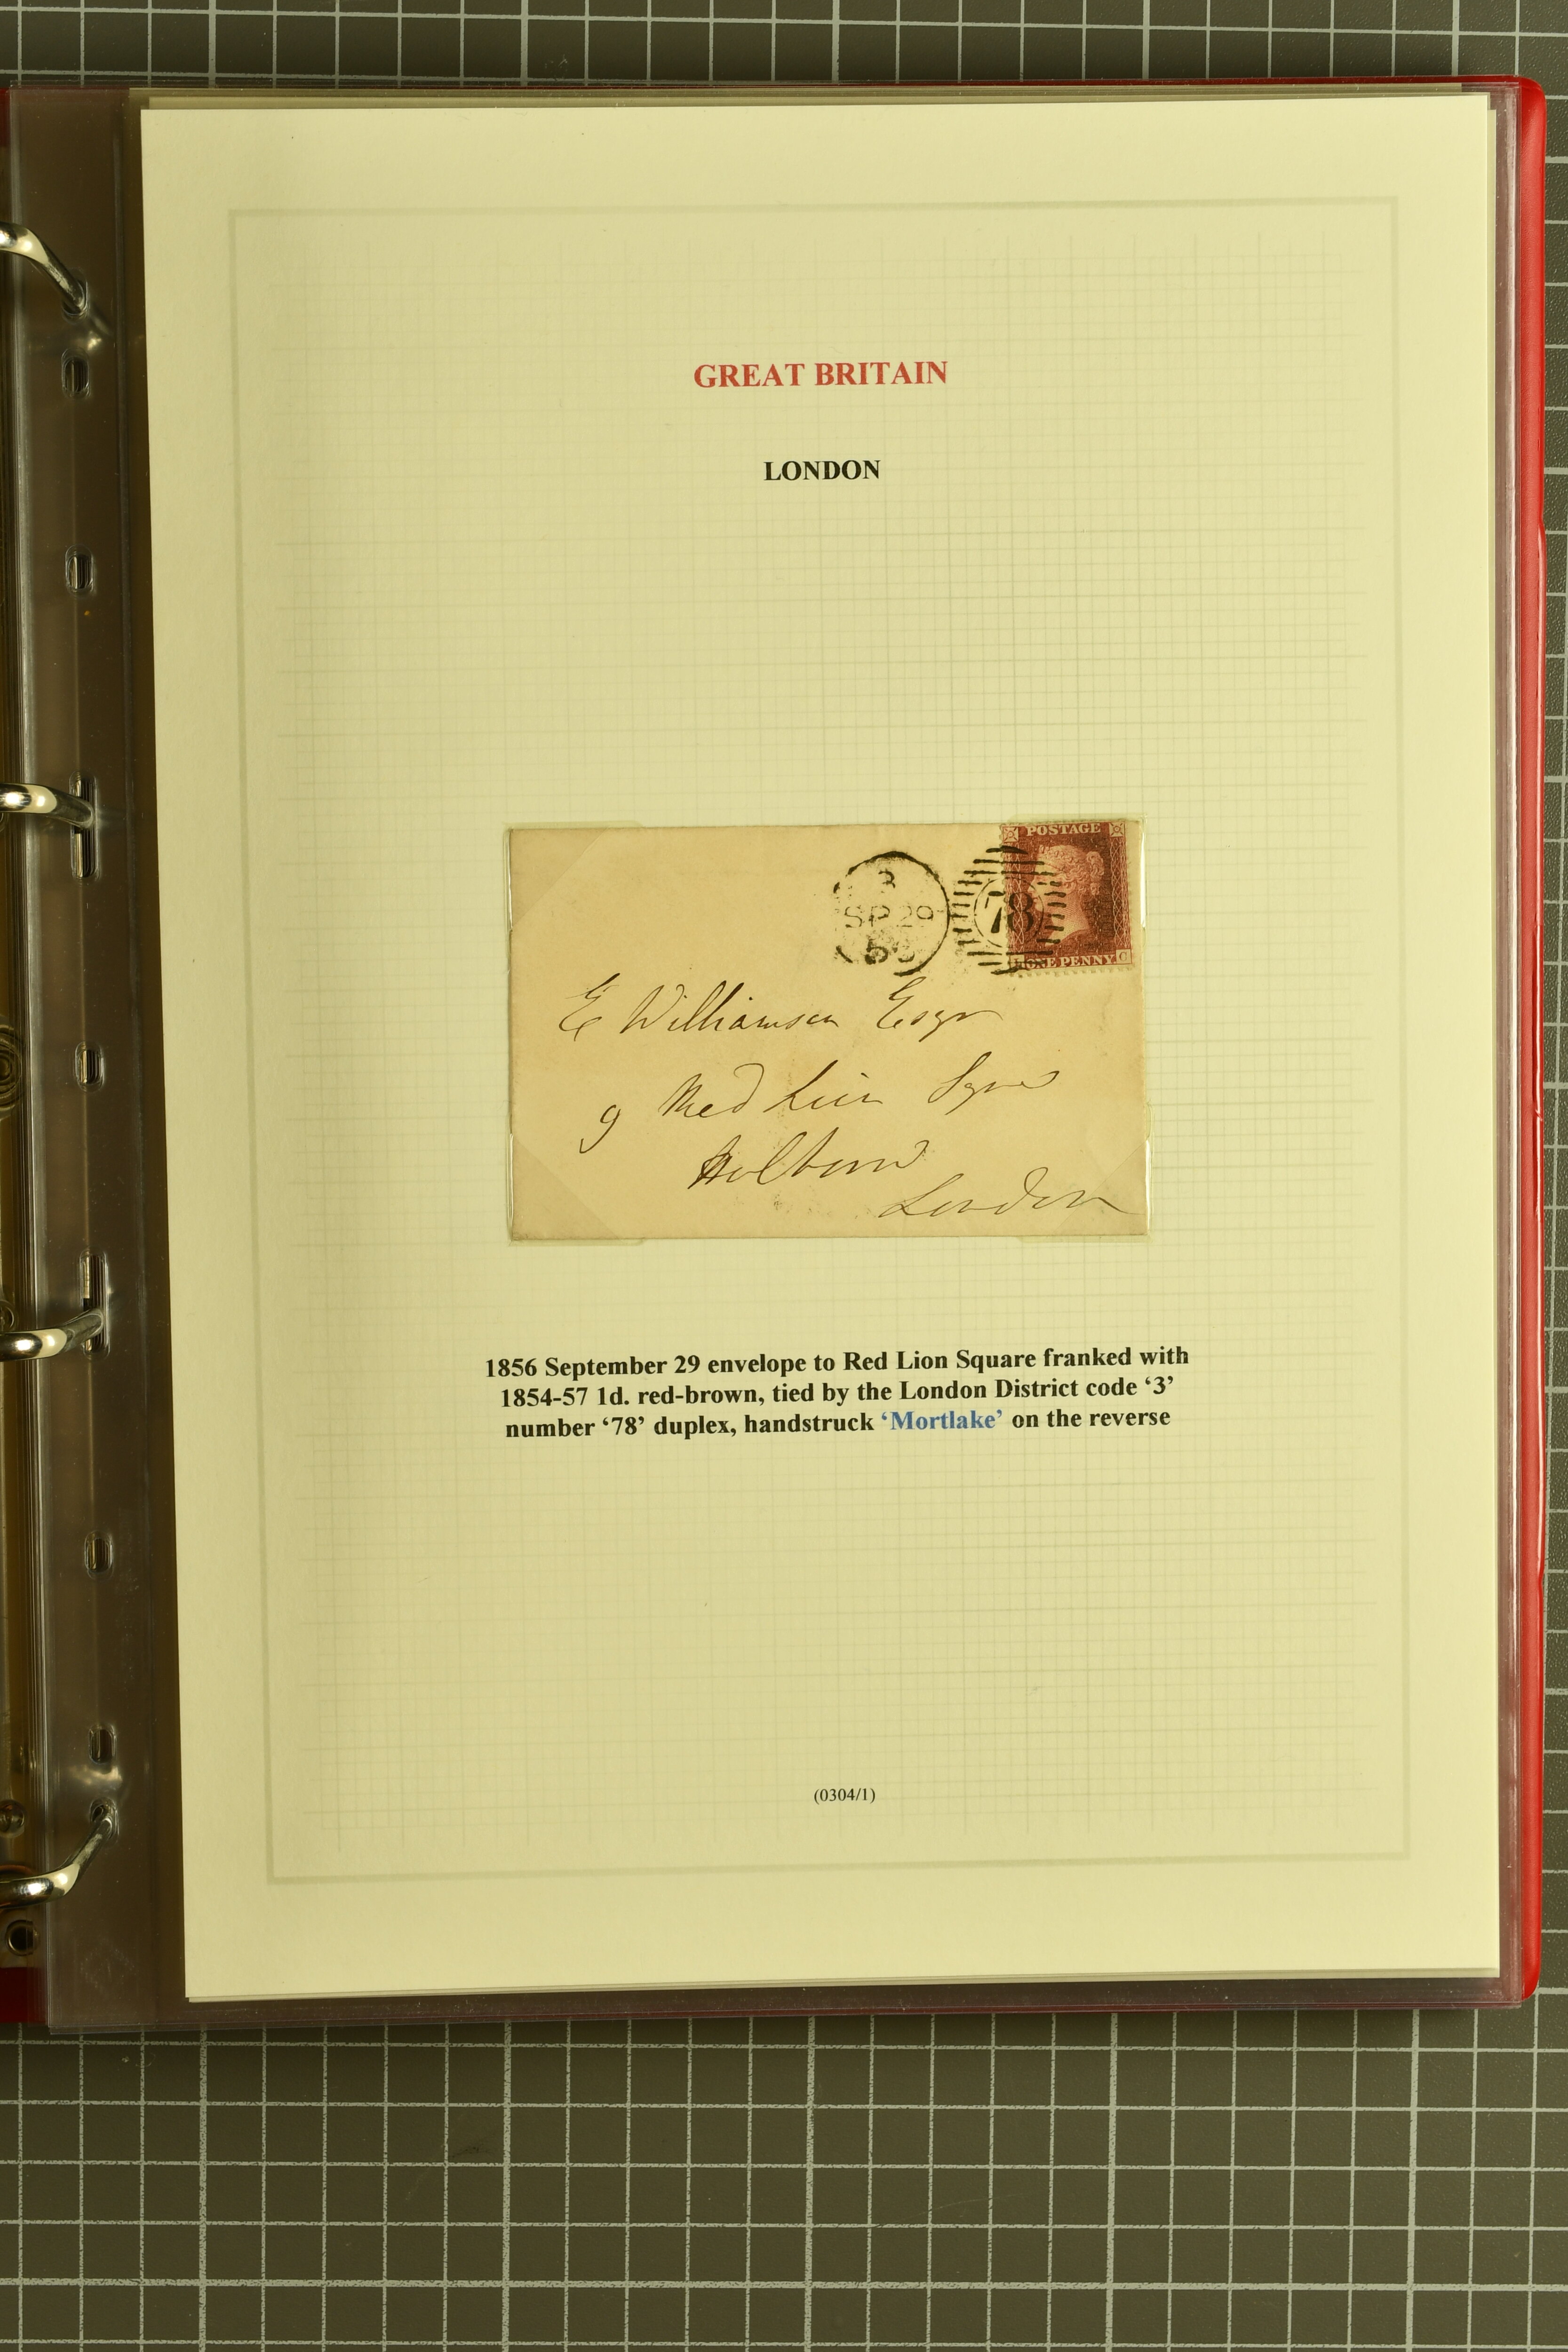 GREAT BRITAIN
LONDON
POSTAGE
3
78
SP 29
56
ONE PENNY. C
E Williamson Esqr
9 Red Lion Sqre
Holborn
London
1856 September 29 envelope to Red Lion Square franked with
1854-57 1d. red-brown, tied by the London District code ‘3’
number ‘78’ duplex, handstruck ‘Mortlake’ on the reverse
(0304/1)